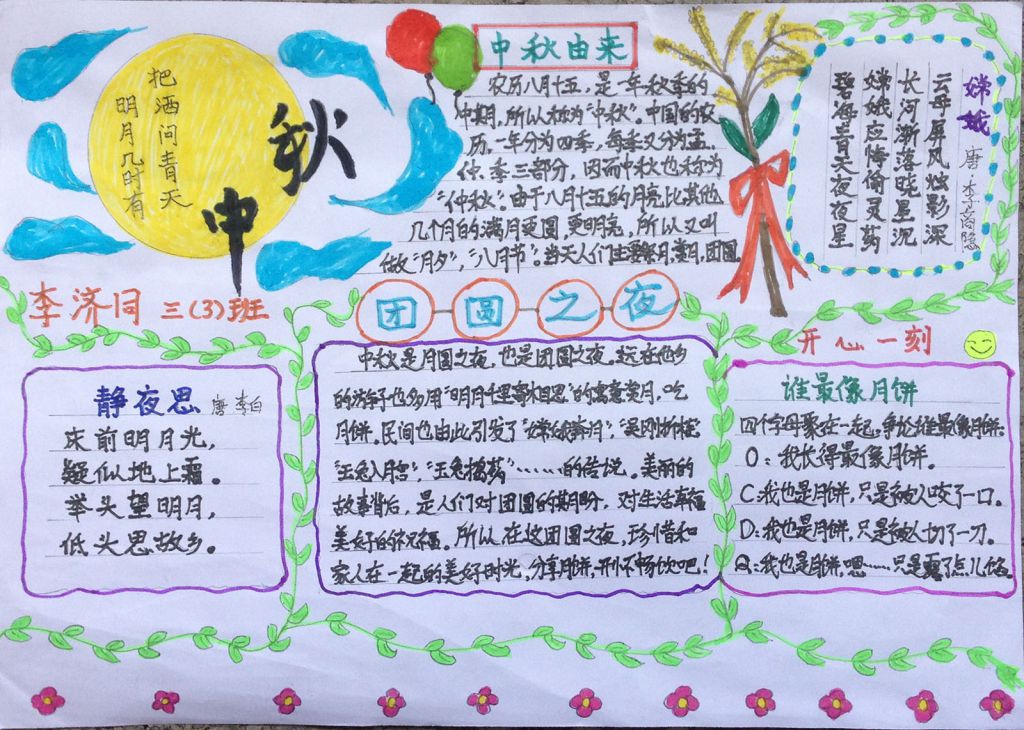 把酒问青天
明月几时有
中秋
中秋由来
农历八月十五，是一年秋季的
中期，所以称为“中秋”。中国的农
历，一年分为四季，每季又分为孟、
仲、季三部分，因而中秋也称为
“仲秋”。由于八月十五的月亮比其他
几个月的满月更圆，更明亮，所以又叫
做“月夕”，“八月节”。当天人们主要祭月，赏月，团圆。
嫦娥
唐·李商隐
云母屏风烛影深
长河渐落晓星沉
嫦娥应悔偷灵药
碧海青天夜夜星
李济同 三(3)班
静夜思 唐 李白
床前明月光，
疑似地上霜。
举头望明月，
低头思故乡。
团圆之夜
中秋是月圆之夜，也是团圆之夜。远在他乡
的游子也多用“明月千里寄相思”的寓意赏月，吃
月饼。民间也由此引发了“嫦娥奔月”，“吴刚折桂”
“玉兔入月宫”，“玉兔捣药”……的传说。美丽的
故事背后，是人们对团圆的期盼，对生活幸福
美好的祝福。所以，在这团圆之夜，珍惜和
家人在一起的美好时光，分享月饼，开怀畅饮吧！
开心一刻
谁最像月饼
四个字母聚在一起，争论谁最像月饼：
O：我长得最像月饼。
C：我也是月饼，只是被人咬了一口。
D：我也是月饼，只是被人切了一刀。
Q：我也是月饼，嗯……只是露了点儿馅。